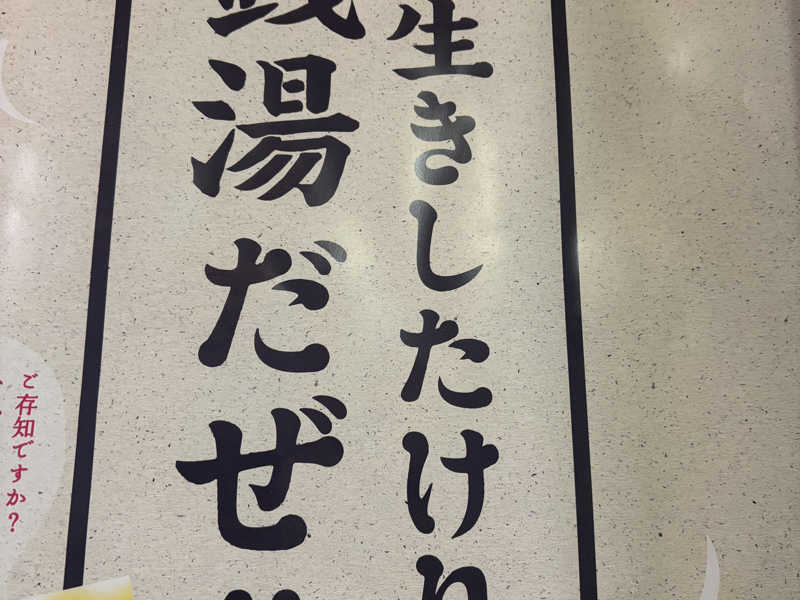 生きしたけり
銭湯だぜ
ご存知ですか？